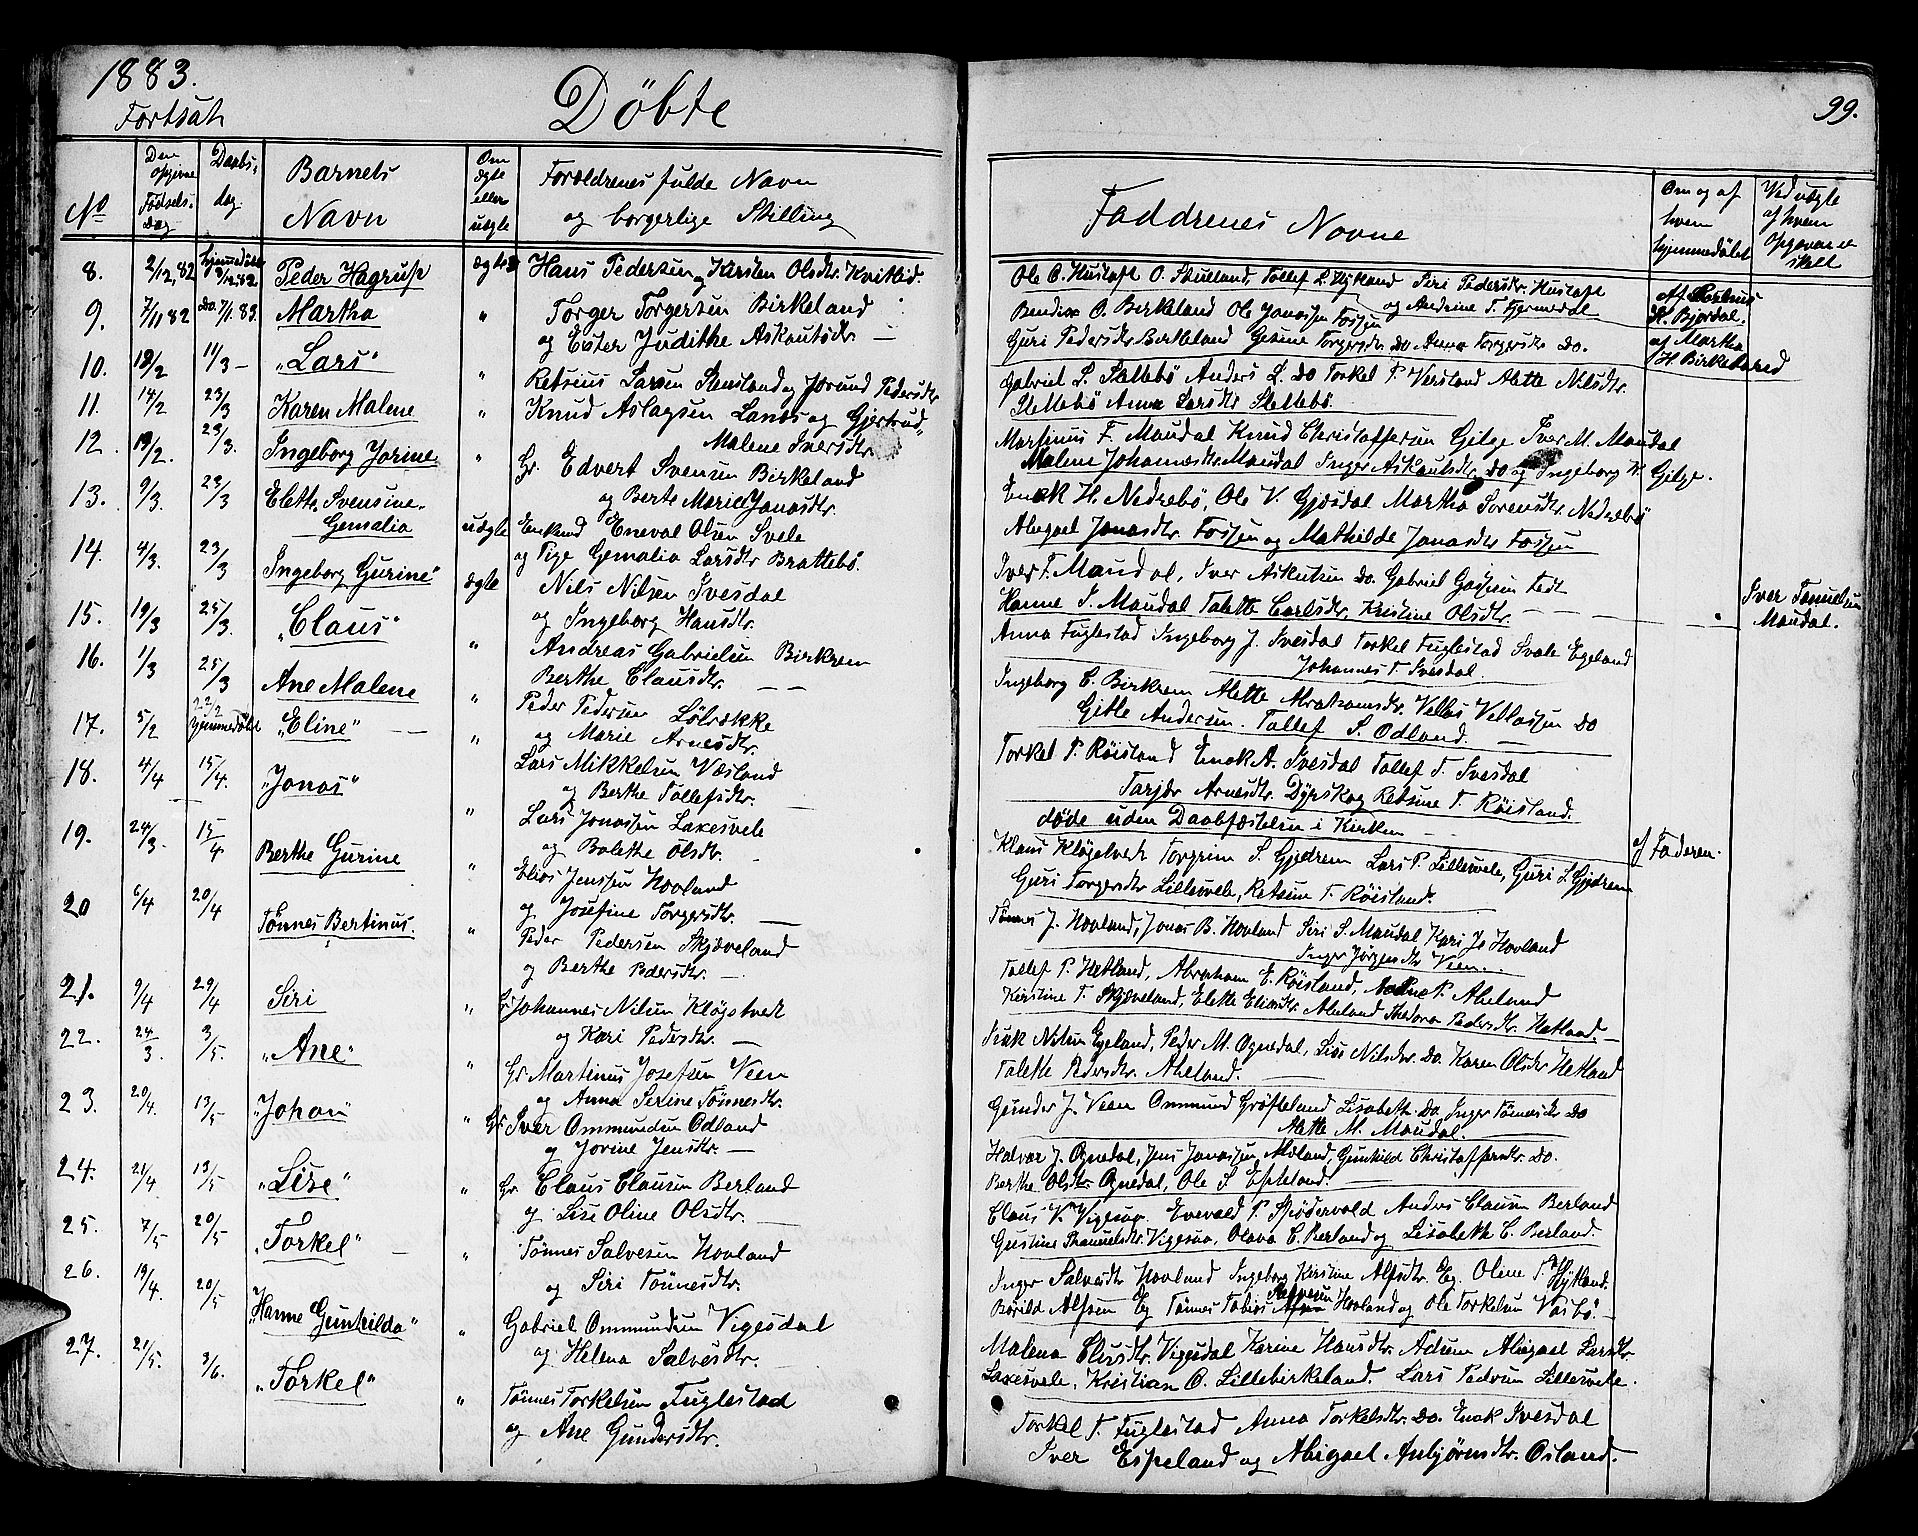 1883.
Fortsat
Döbte
No
Den opgivne Fødsels-Dag
Daabs-dag
Barnets Navn
Om ægte eller uægte
Forældrenes fulde Navn
og borgerlige Stilling
8. 2/12 82 Hjemmedöbt 9/12 82 Peder Hagrup ægte Hans Pedersen og Kirsten Olsdtr. Kvitlid.
9. 7/11 82 Do. 7/1 83. Martha " Torger Torgersen Birkeland
og Ester Judithe Askautsdtr. —
10. 18/2 11/3 — "Lars" " Retsius Larsen Stensland og Jorund Pedersdtr
11. 14/2 23/3 Karen Malene " Knud Aslagsen Lands og Gjertrud
Malene Iversdtr.
12. 19/2. 23/3. Ingeborg Jorine " Gr. Edvert Svensen Birkeland
og Berte Marie Jonasdtr.
13. 9/3. 23/3 Elette Svensine Gemalia uægte Enkemd Eneval Olsen Svele
og Pige Gemalia Larsdtr Brattebö.
14. 4/3. 23/3 Ingeborg Gurine ægte Nils Nilsen Ivesdal
og Ingeborg Hansdtr.
15. 19/3 25/3. "Claus" " Andreas Gabrielsen Birkrem
Berthe Clausdtr. — —
16. 1/3 25/3 Ane Malene " Peder Pedersen Löbrekke
og Marie Arnesdtr.
17. 5/2 22/2 hjemmedöbt "Eline" — " Lars Mikkelsen Væsland
og Berthe Tollefsdtr.
18. 4/4 15/4. "Jonas" " Lars Jonassen Laxesvele
og Bolethe Olsdtr.
19. 24/3. 15/4 Berthe Gurine " Elias Jenssen Hovland
og Josefine Torgersdtr. —
20 6/4 20/4 Tönnes Bertinus. " Peder Pedersen Skjæveland
og Berthe Pedersdtr. —
21. 9/4 29/4 Siri " Gr Johannes Nilsen Klögetvedt
og Kari Pedersdtr. —
22. 24/3. 3/5. "Ane" " Gr Martinus Josefsen Veen
og Anna Serine Tönnesdtr.
23. 20/4. 13/5 "Johan" " Gr Iver Ommundsen Odland
og Jorine Jensdtr. —
24. 21/4 13/5 "Lise" " Gr. Claus Clausen Berland
og Lise Oline Olsdtr. —
25. 7/5 20/5 "Torkel" — " Tönnes Salvesen Hovland
og Siri Tönnesdtr.
26. 19/4. 20/5 "Hanne Gunhilda" " Gabriel Ommundsen Vigesdal
og Helena Salvesdtr.
27. 21/5. 3/6. "Torkel" " Tönnes Torkelsen Fuglestad
og Ane Gundersdtr.
99.
Faddrenes Navne
Om og af hvem hjemmedöbt
Ved uægte af hvem Opgaven er skeet
Ole O. Hustoft O. Stensland, Tollef L Hytland Siri Pedersdtr. Hustoft
og Andrine T. Fjermedal
Bendix O. Birkeland Ole Jonassen Fossen
Guri Pedersdtr Birkeland Gesine Torgersdtr. Do Anna Torgersdtr Do.
Af
K. Bjordal.
af Martha
H. Birkeland
Gabriel S. Stellebö Anders L. Do Torkel P. Versland Alette Nilsdtr.
Stellebö Anna Larsdtr Stellebö.
Martinus F. Maudal Knud Christoffersen Gilje Iver M. Maudal
Malene Johannesdtr. Maudal Inger Askautsdtr. Do og Ingeborg K Gilje.
Enok H. Nedrebö, Ole V. Gjesdal Martha Sorensdtr. Nedrebö
Abigael Jonasdtr. Fossen og Mathilde Jonasdtr Fossen
Iver F. Maudal, Iver Askutsen Do. Gabriel
Hanne I. Maudal Talette Carlsdtr. Kristine Olsdtr. —
Iver Tönnesen Maudal.
Anna Fuglestad Ingeborg J. Ivesdal Torkel Fuglestad Svale Egeland
Johannes T. Ivesdal.
Ingeborg C. Birkrem Alette Abrahamsdtr. Vellas Vellassen Do
Gitle Andersen. Tollef S. Odland. —
Torkel P. Röisland Enok A. Ivesdal Tollef T. Ivesdal
Tarjer Arnesdtr. Dyrskog Retsine T. Röisland.
döde uden Daabfæstelsen i Kirken —
af Faderen.
Klaus Klögetvedt Torgrim S. Gjedrem Lars P. Lillesvele, Guri S. Gjedrem
Guri Torgersdtr Lillesvele, Retsine T. Röisland.
Tönnes J. Hovland, Jonas B. Hovland Siri S. Maudal, Kari Js Hovland
Inger Jörgensdtr Veen.
Tollef P. Hetland, Abraham E. Röisland, P. Aleland
Kirstine T. Skjæveland, Elette Eliasdtr. Aleland Thedora Pedersdtr. Hetland. —
Isak Nilsen Egeland, Peder M. Ognedal, Lise Nilsdtr. Do. Karen Olsdtr Hetland
Talette Pedersdtr. Aleland.
Gunder J. Veen Ommund Gröfteland Lisabeth. Do. Inger Tönnesdtr Do
Mette M. Maudal.
Halvar J. Ognedal, Jens Jonassen Moland, Gunhild Christoffersdtr. Do.
Berthe Olsdtr. Ognedal, Ole S Espeland.
Claus V. Vigesaa. Enevald P. Spödervold Anders Clausen Berland
Gustine Thamuelsdtr. Vigesaa, Olava C. Berland og Lisabeth C. Berland.
Inger Salvesdtr Hovland Ingeborg Kirstine Alfsdtr. Eg. Oline T. Hytland.
Borild Alfsen Eg Tönnes Tobias Salvesen Hovland og Ole Torkelsen Vasbö. —
Malena Elusdtr. Vigesdal Karine Hansdtr. Abigael Larsdtr.
Laxesvele. Kristian O. Lillebirkeland. Lars Pedersen Lillesvele.
Torkel T. Fuglestad Anna Torkelsdtr. Do. Enok Ivesdal
Iver Espeland og Abigael Anbjörnsdtr. Osland.